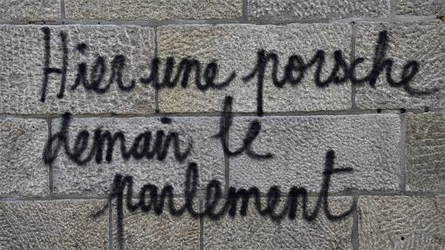 Hier une porsche
demain le
parlement